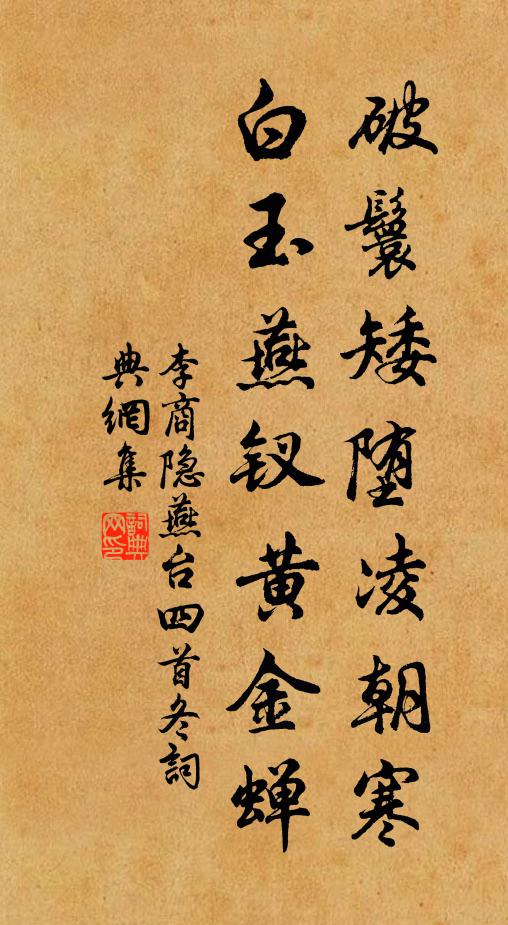 破鬟矮堕凌朝寒
白玉燕钗黄金蝉
李商隐燕台四首冬詞
典網集
詞典网印